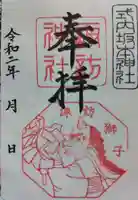 式内坂本神社
奉拝
諏訪神社
諏訪獅子
令和二年　月　日